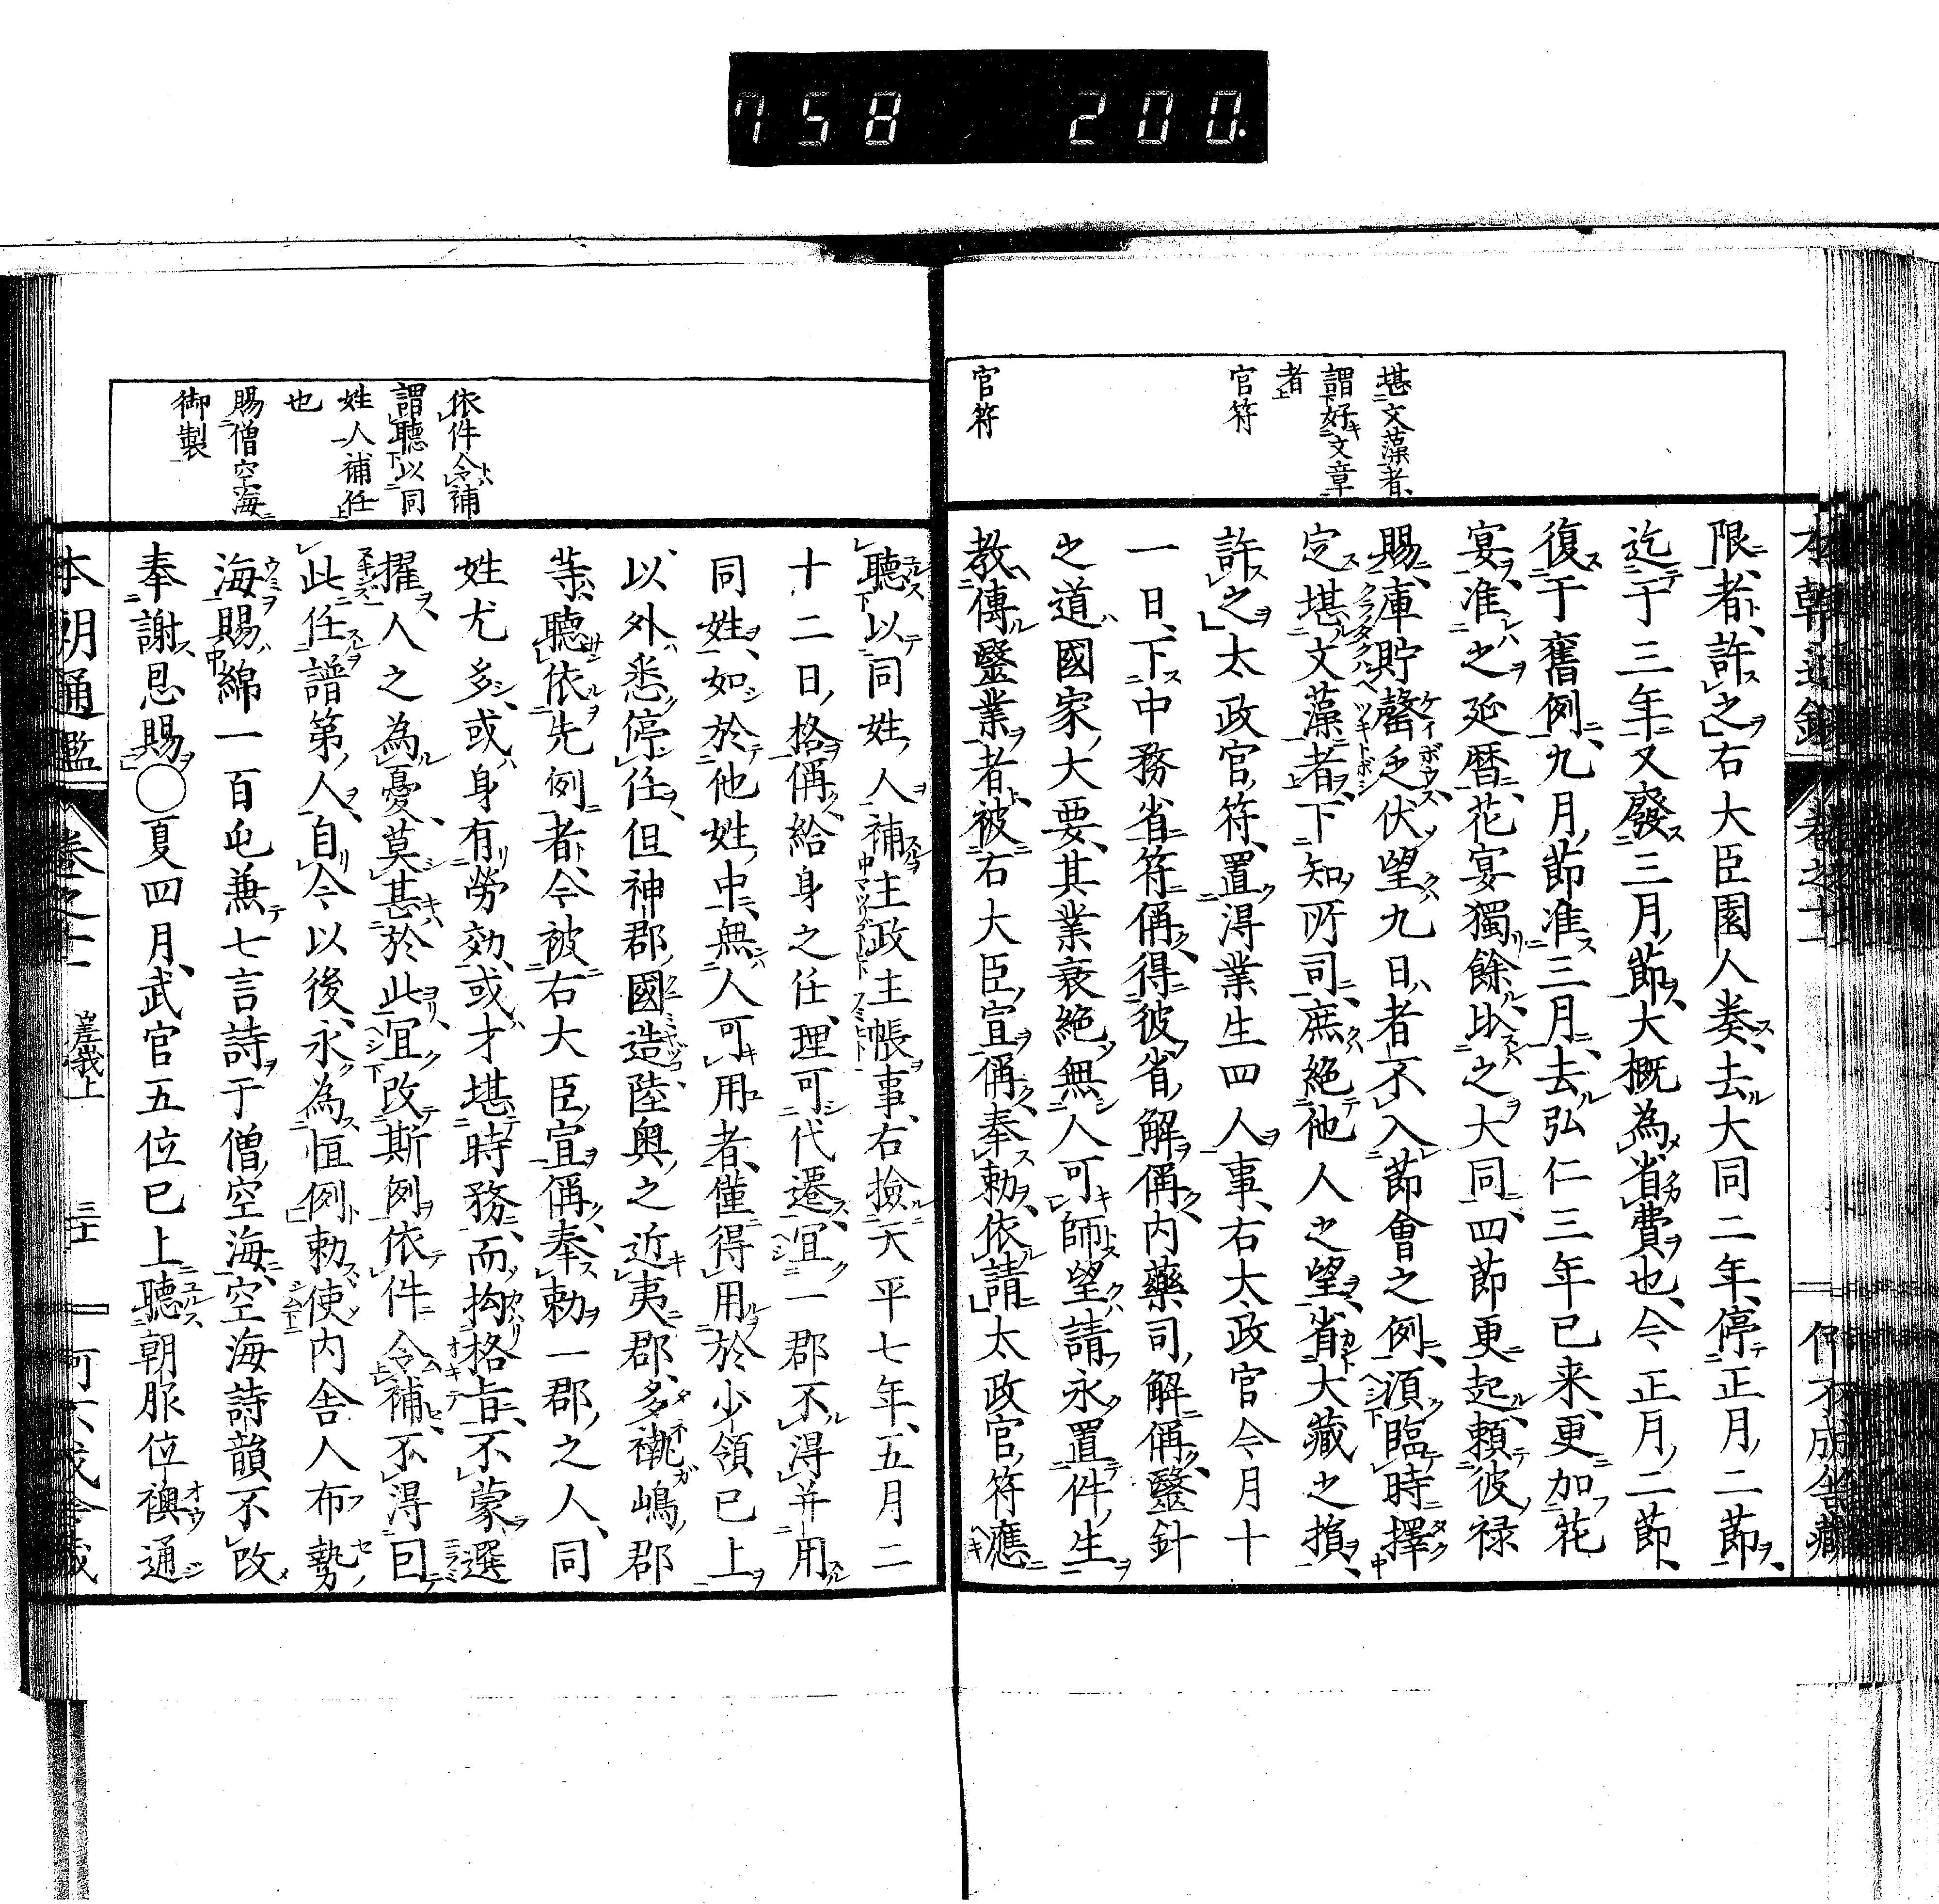 758 200.
堪文藻者、
謂好文章
者
官符
官符
限、者、許之、右大臣園人奏、去大同二年、停正月二節、
迄于三年、又廢三月節、大概為省費也、今正月二節、
復于舊例、九月節准三月、去弘仁三年已来、更加花
宴、准之延曆、花宴獨餘、比之大同、四節更起、頼彼禄
賜、庫貯罄乏、伏望九日者、不入節會之例、須臨時擇
定堪文藻者、下知所司、庶絶他人之望、省大藏之損、
許之、太政官符、置得業生四人事、右太政官今月十
一日、下中務省符偁、得彼省解偁、内藥司解偁、醫針
之道、國家大要、其業衰絶、無人可師、望請永置件生、
教傳醫業者、被右大臣宣偁、奉勅、依請、太政官符、應
依件令補
謂聽以同
姓人補任
也
賜僧空海
御製
聽以同姓人補主政主帳事、右撿天平七年五月二
十二日格偁、給身之任、理可代遷、宜一郡不得并用
同姓、如於他姓中、無人可用者、僅得用於少領已上、
以外悉停任、但神郡國造、陸奥之近夷郡、多褹嶋郡
等、聽依先例者、今被右大臣宣偁、奉勅、一郡之人、同
姓尤多、或身有勞効、或才堪時務、而拘格旨、不蒙選
擢、人之為憂、莫甚於此、宜改斯例、依件令補、不得因
此任譜第人、自今以後、永為恒例、勅使内舎人布勢
海賜綿一百屯兼七言詩于僧空海、空海詩韻不改
奉謝恩賜、〇夏四月、武官五位已上、聽朝服位襖、通
本朝通鑑 卷之十一 嵯峨上 三十